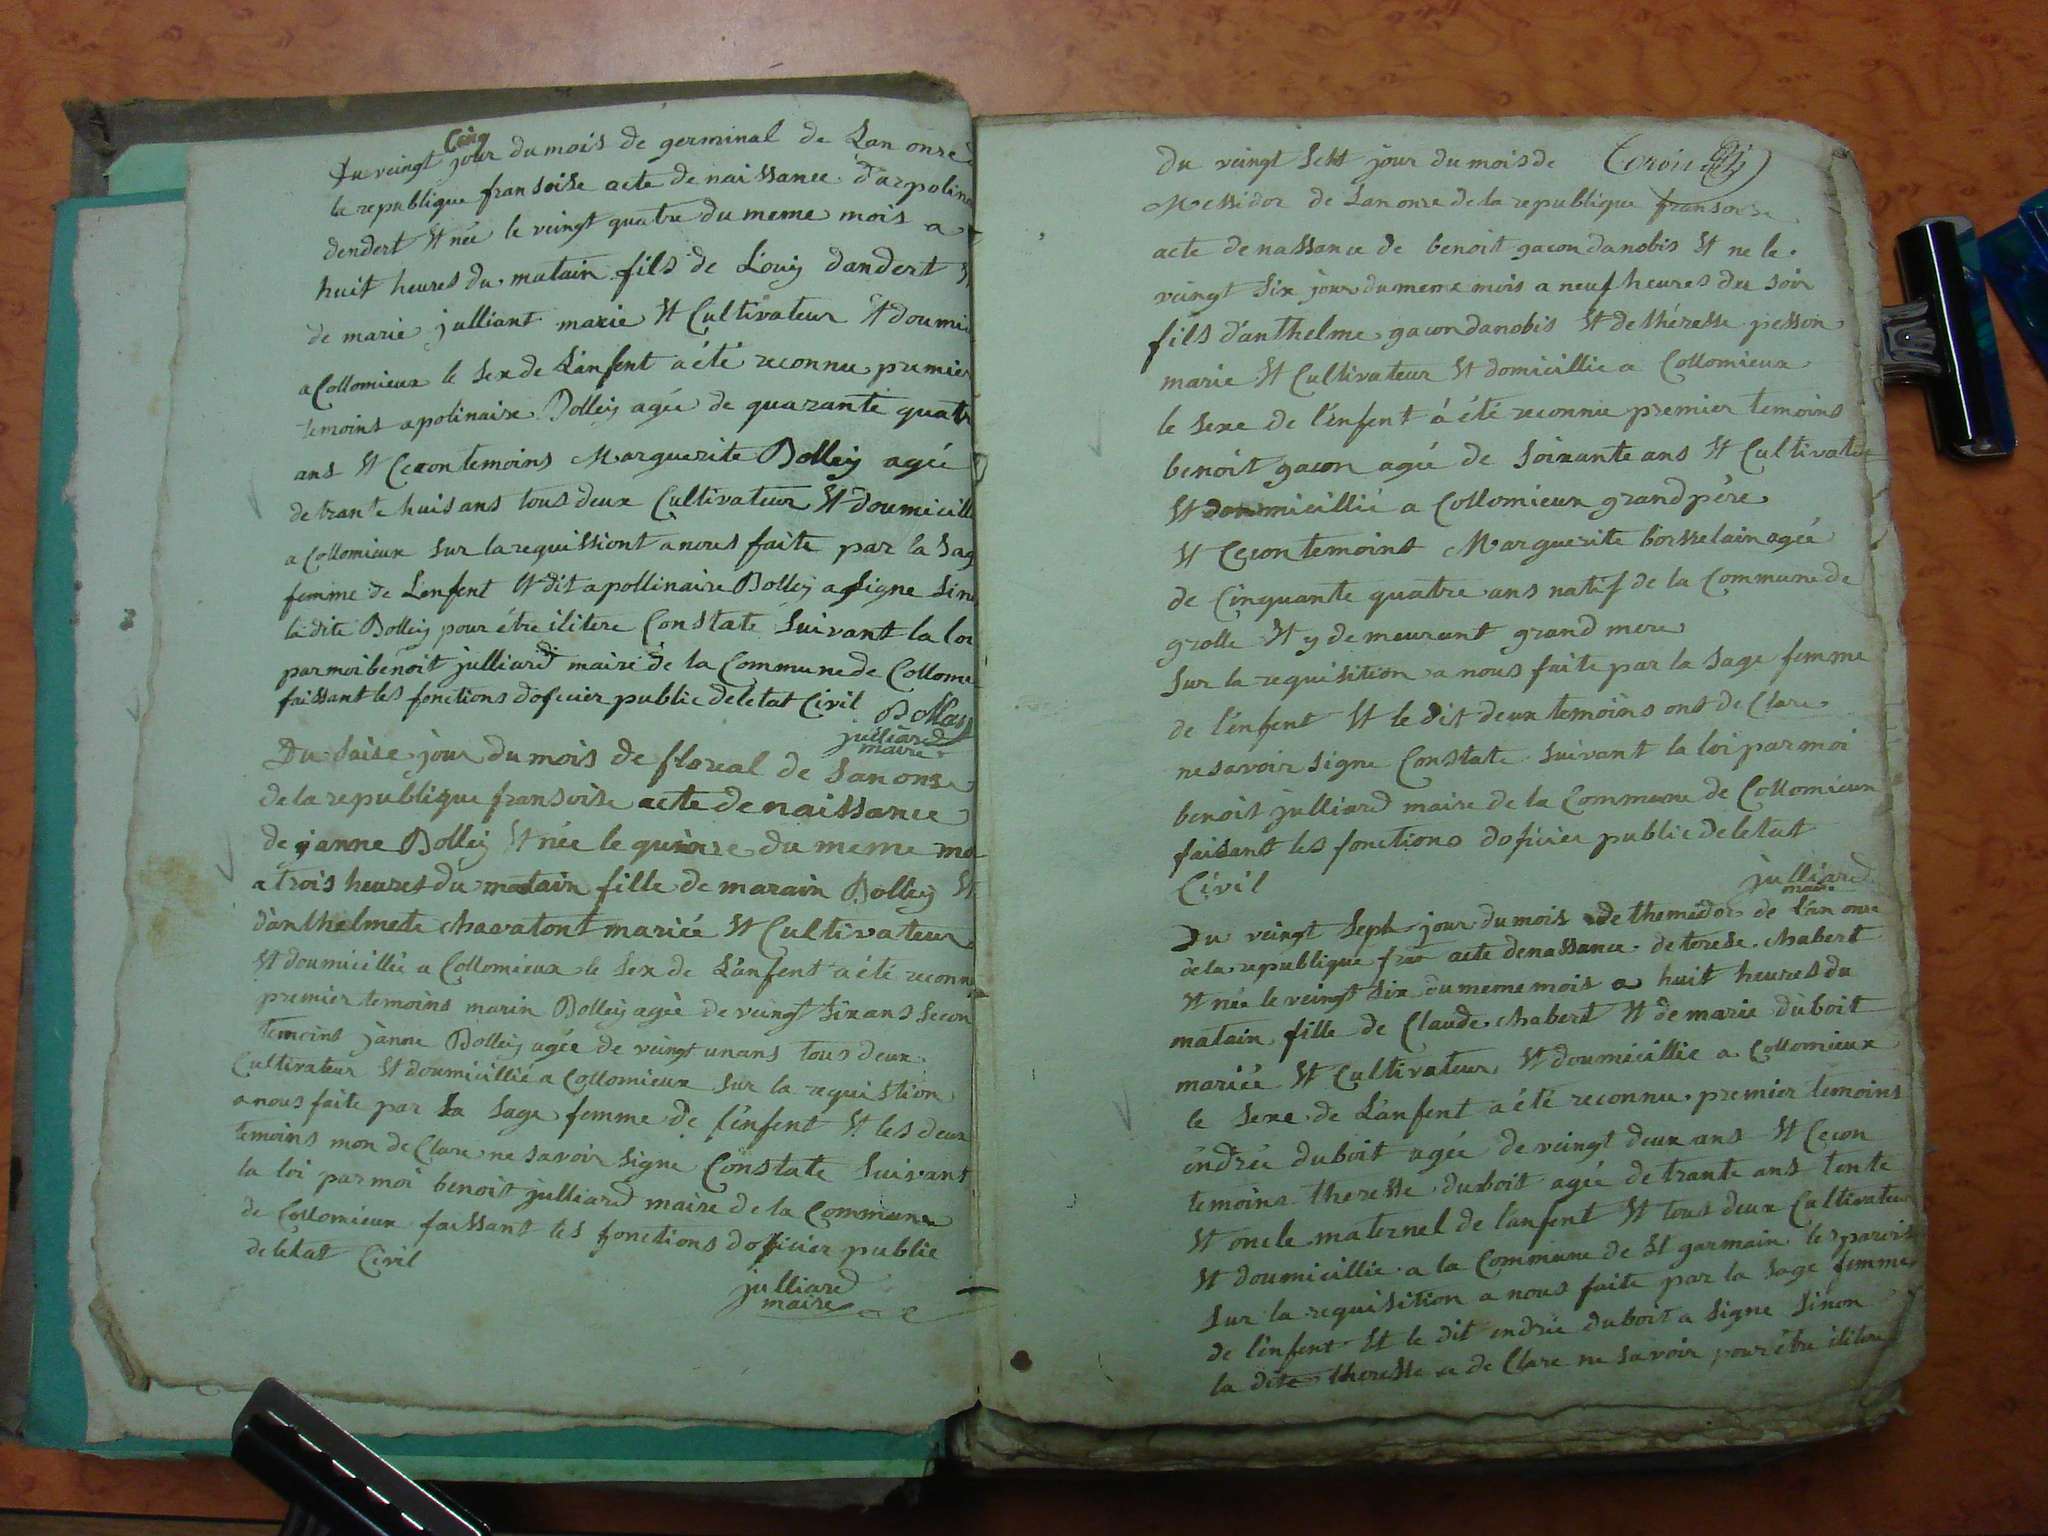 Du veingt Cinq jour du mois de germinal de Lan onze
la republique fransoise acte de naissance d'arpoline
dendert Et née le veingt quatre du meme mois a
huit heures du matain fils de Louiy dandert Et
de marie julliant marie Et Cultivateur Et doumi
a Collomieux le sex de L'anfent a été reconnu premier
temoins apolinaire Bolley agée de quarante quatr
ans Et Cecon temoins Marguerite Bolley agée
de trante huis ans tous deux Cultivateur Et doumicill
a Collomieux sur la requissiont a nous faite par la sag
femme de L'enfent Et dit apollinaire Bolley a signe sino
la dite Bolley pour étre ilitere Constaté suivant la loi
par moi benoit julliard maire de la Commune de Collome
faissant les fonctions d'oficier public de letat Civil
Bolley
julliard
maire
Du saise jour du mois de floreal de Lan onze
de la republique fransoise acte de naissance
de janne Bolley Et née le quinze du meme mo
a trois heures du matain fille de marain Bolley Et
d'anthelmete chavatont mariée Et Cultivateur
Et doumicillie a Collomieux le sex de L'anfent a été reconn
premier temoins marin Bolley agée de veingt six ans secon
temoins janne Bolley agée de veingt un ans tous deux
Cultivateur Et doumicillié a Collomieux sur la requistion
a nous faite par la sage femme de l'enfent Et les deux
temoins mon de Clare ne savoir signe Constate suivant
la loi par moi benoit julliard maire de la Commune
de Collomieux faissant les fonctions d'oficier public
de letat Civil
julliard
maire
Du veingt sett jour du mois de
Messidor de Lan onze de la republique fransoise
acte de nassance de benoit gacon danobis Et ne le
veingt six jour du meme mois a neuf heures du soir
fils d'anthelme gacon danobis Et de théresse pesson
marie Et Cultivateur Et domicillie a Collomieux
le sexe de l'enfent a été reconnue premier temoins
benoit gacon agée de soixante ans Et Cultivateur
Et doumicillié a Collomieux grand père
Et Cecon temoins Marguerite bosselain agée
de Cinquante quatre ans natif de la Commune de
grolle Et y demeurant grand mere
sur la requisition a nous faite par la sage femme
de l'enfent Et le dit deux temoins ont de Clare
ne savoir signe Constate suivant la loi par moi
benoit julliard maire de la Commune de Collomieux
faisant les fonctions d'oficier public de letat
Civil
julliard
maire
Du veingt seph jour du mois de themidor de L'an onze
de la republique acte de nassance de terese chabert
Et née le veingt six du meme mois a huit heures du
matain fille de Claude chabert Et de marie duboit
mariée Et Cultivateur Et doumicillie a Collomieux
le sexe de L'anfent a été reconnu premier temoins
éndrée duboit agée de veingt deux ans Et Cecon
temoins theresse duboit agée de trante ans tente
Et oncle maternel de l'anfent Et tous deux Cultivateur
Et doumicillie a la Commune de St garmain les paroisse
sur la requisition a nous faite par la sage femme
de l'enfent Et le dit endrée duboit a signe sinon
la dite theresse a de Clare ne savoir pour étre ilitere